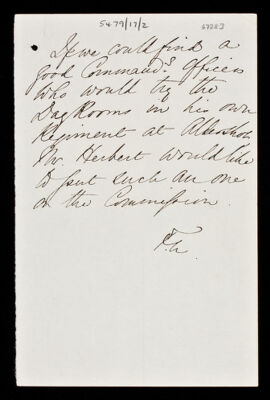 5479/17/2
57283
If we could find a
good Command.g Officer
who would try the
Day Rooms in his own
Regiment at Aldershot
Mr. Herbert would like
to put such an one
on the Commission.
F.N.